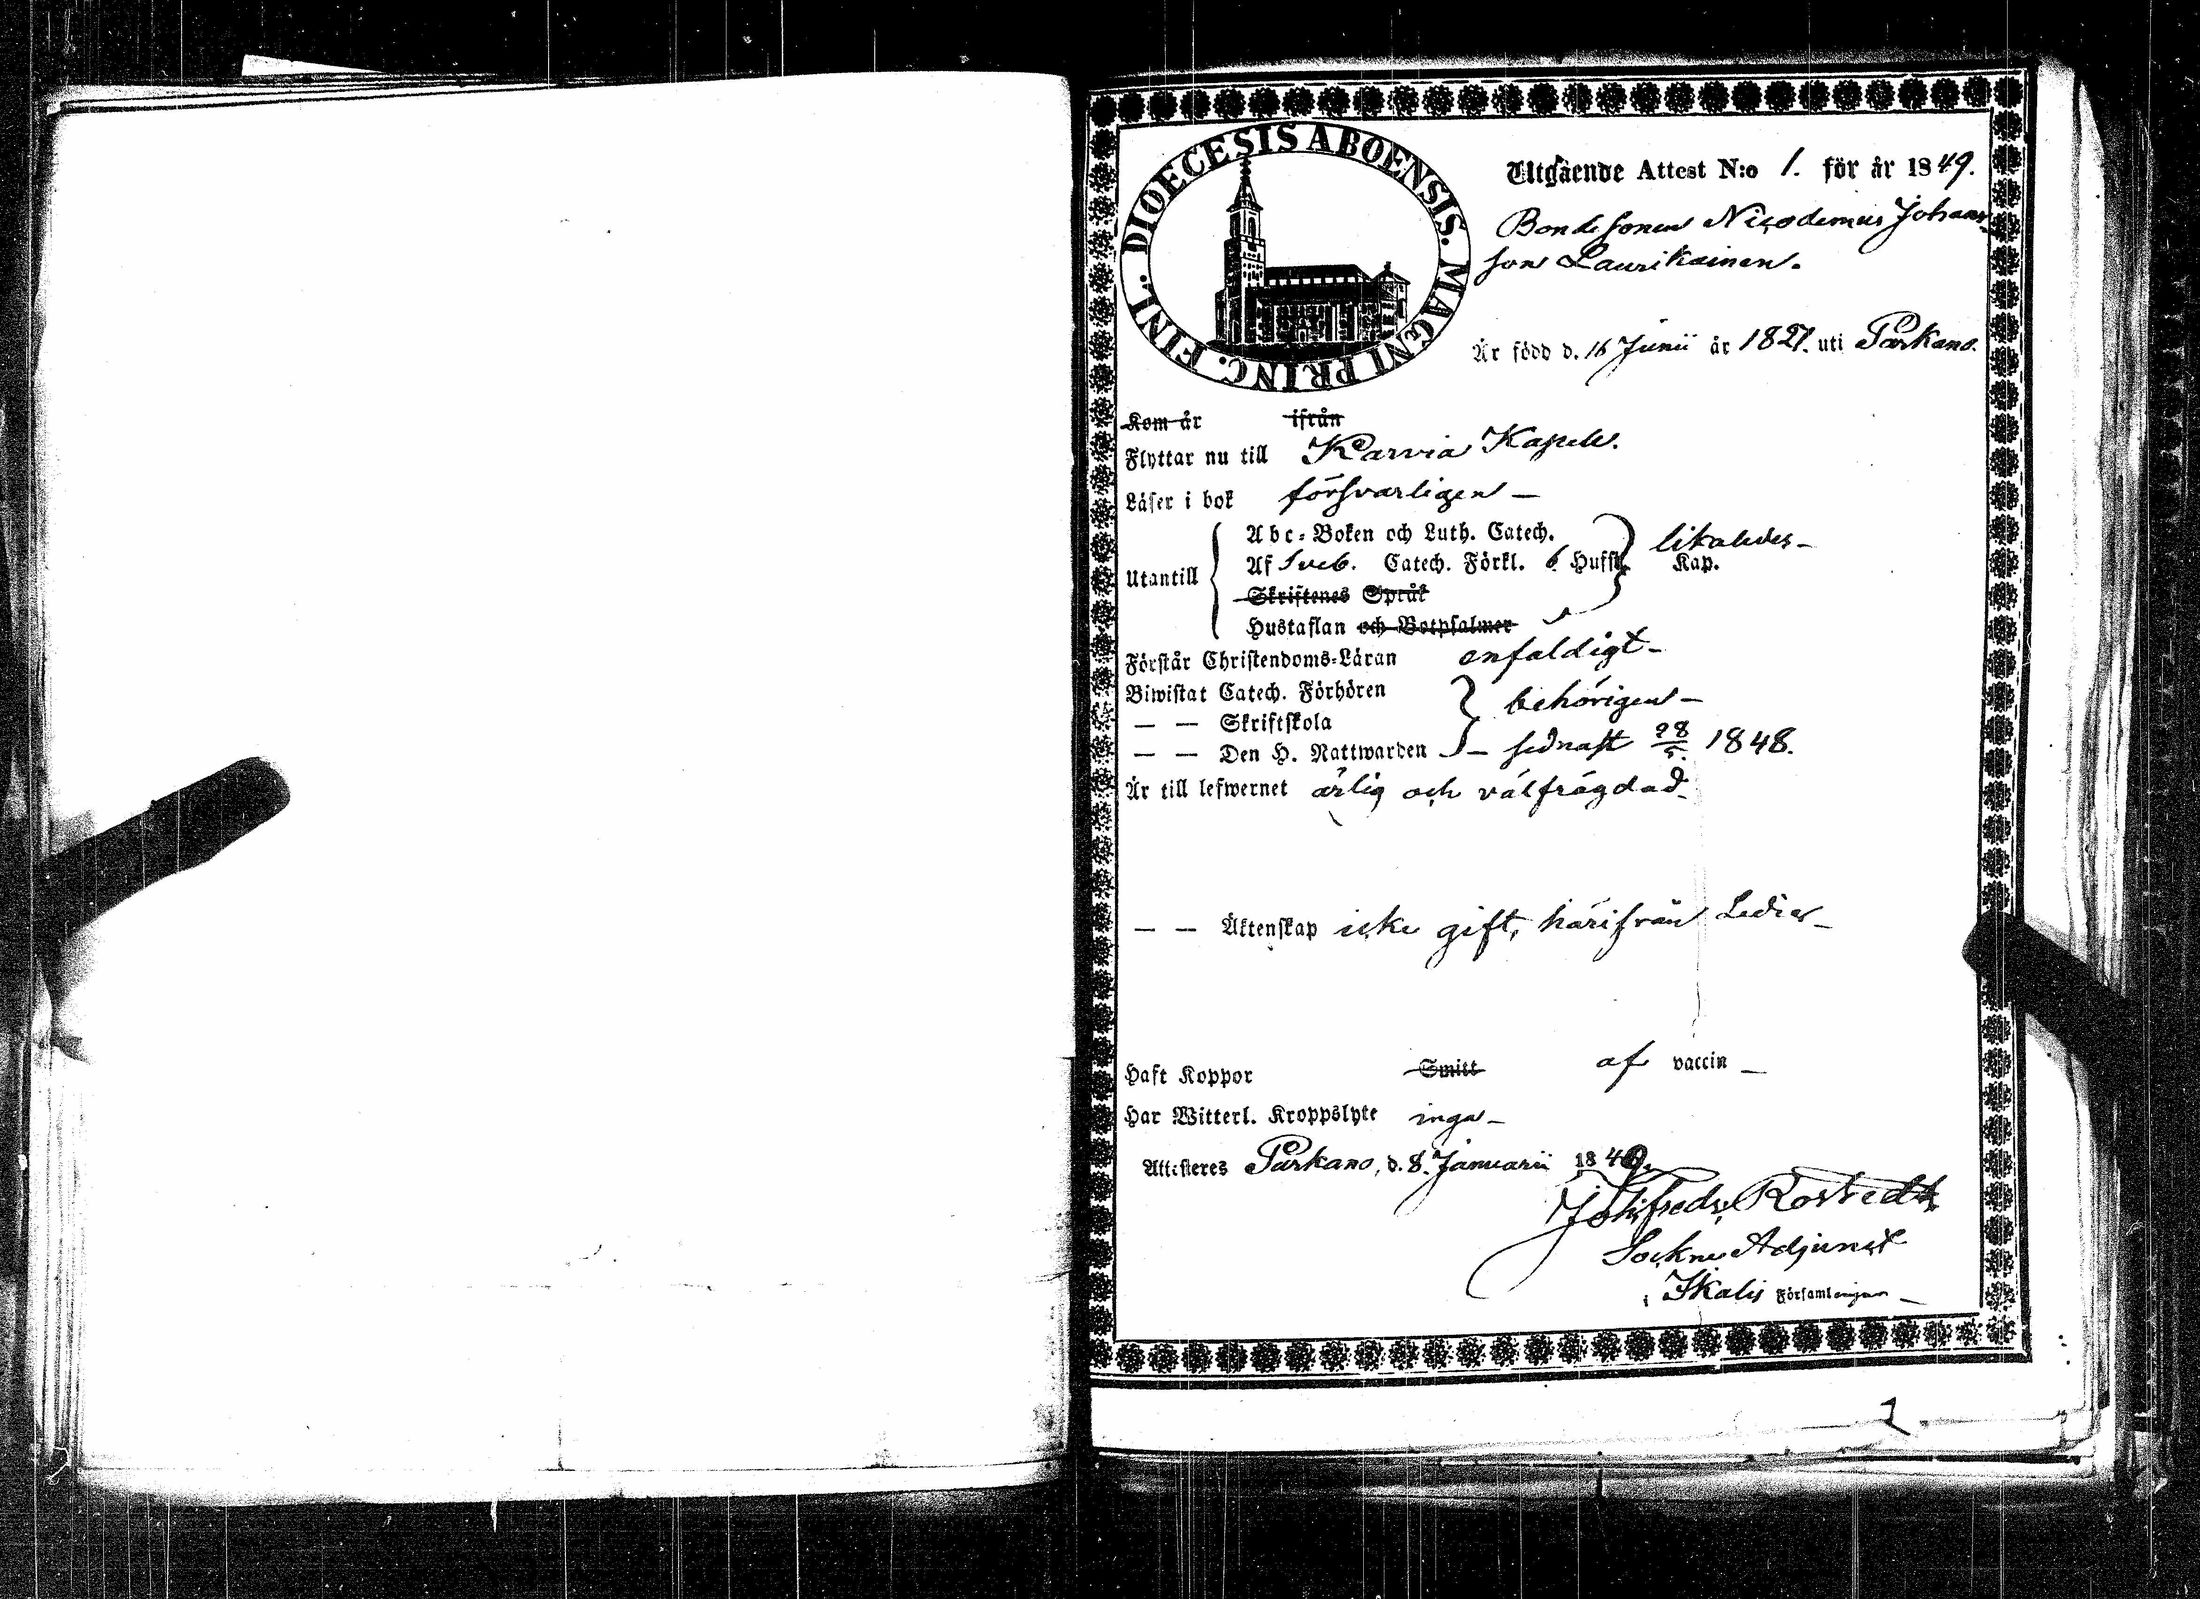 DIOECESIS ABOENSIS. MAGNI PRINC. FINL.
Utgående Attest N:o 1. för år 1849.
Bondesonen Nicodemus Johans
son Laurikainen.
Är född d. 16 Junii år 1827. uti Parkano.
Kom år ifrån
Flyttar nu till Karvia Kapell.
Läser i bok försvarligen —
Utantill
Abc-Boken och Luth. Catech.
likaledes —
Af Sveb. Catech. Förkl. 6 Hufst. Kap.
Skriftenes Språk
Hustaflan och Botpsalmer
Förstår Christendoms-Läran enfaldigt —
Biwistat Catech. Förhören
behörigen —
— — Skriftskola
— — Den H. Nattwarden — sednast 28/5. 1848.
Är till lefwernet ärlig och välfrägdad —
— — Äktenskap icke gift, härifrån Ledig —
Haft Koppor Smitt af vaccin —
Har Witterl. Kroppslyte inga —
Attesteres Parkano, d. 8. Januarii 1849.
Rostedt
Sockne Adjunct
i Ikalis Församlingen —
1